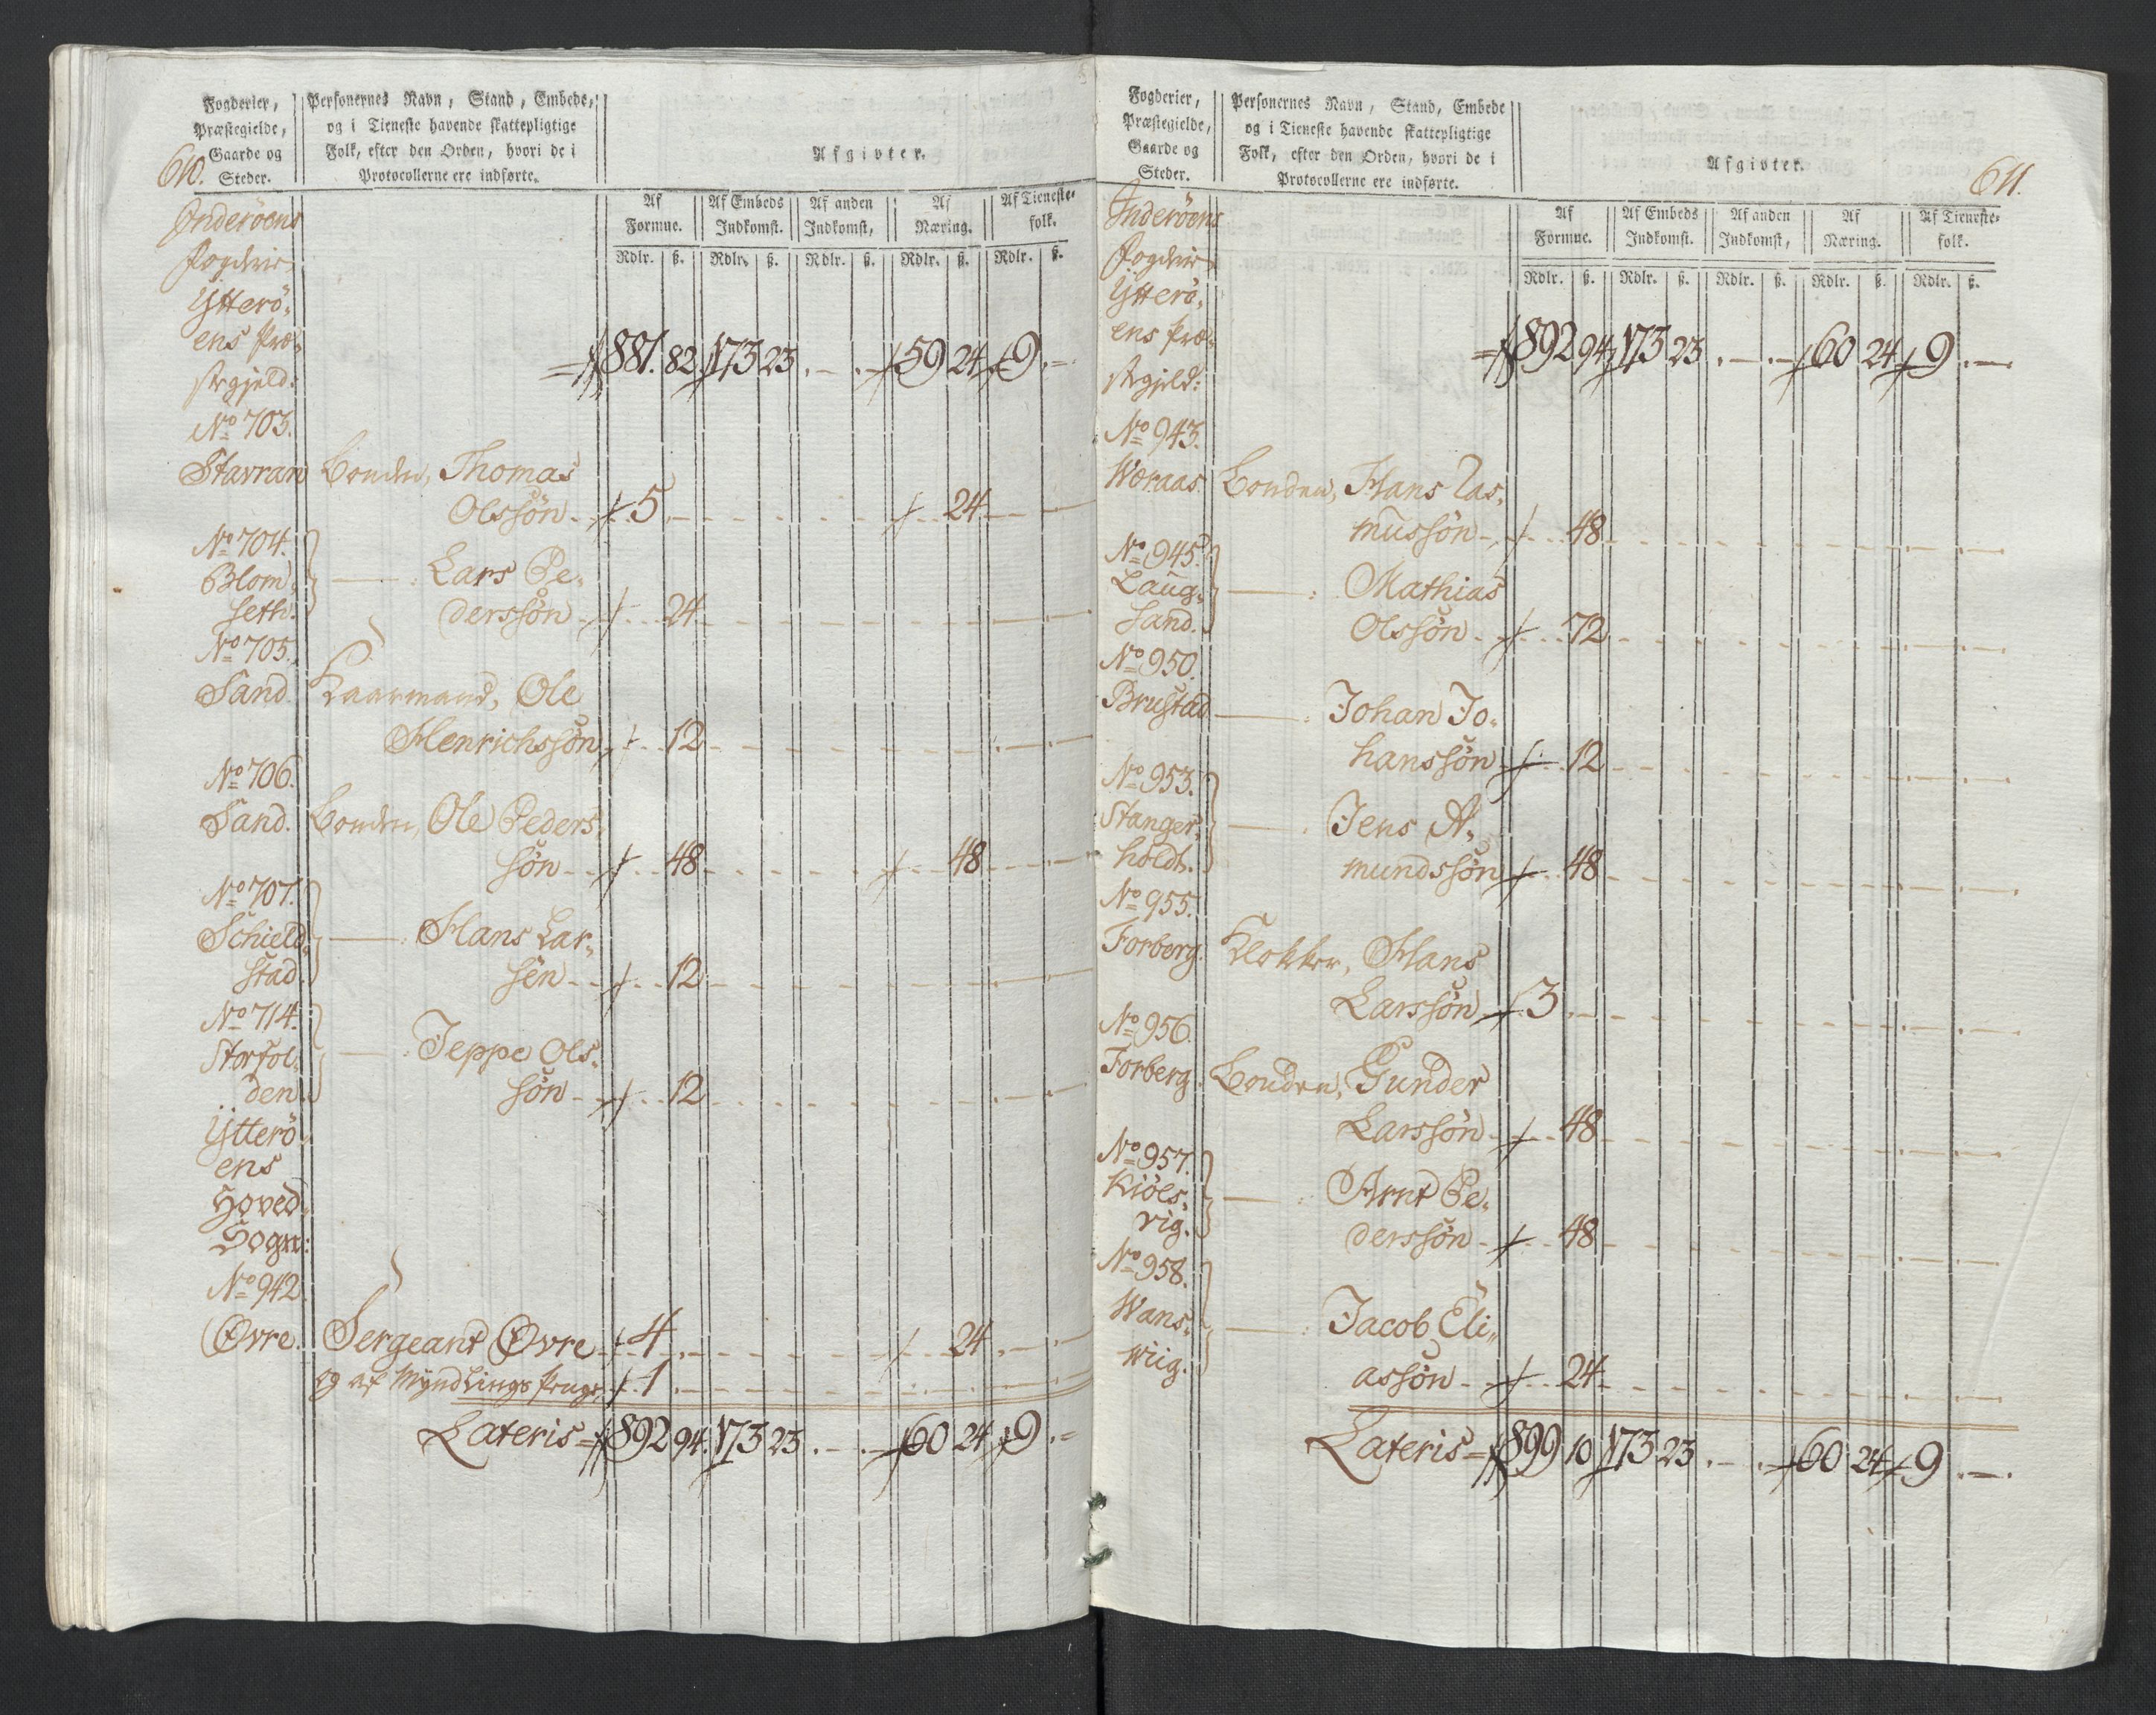 610.
Fogderier,
Præstegielde,
Gaarde og
Steder.
Personernes Navn, Stand, Embede,
og i Tieneste havende skattepligtige
Folk, efter den Orden, hvori de i
Protocollerne ere indførte.
Afgivter.
Af Formue. Af Embeds Indkomst. Af anden Indkomst, Af Næring. Af Tieneste- folk.
Rdlr. ß. Rdlr. ß. Rdlr. ß. Rdlr. ß. Rdlr. ß.
Inderöens
Fogderie,
Ytterö-
ens Præ-
stegjeld:
881. 82. 173 23. . — . — 59 24 9. —
No 703.
Stavran Bonden, Thomas
Olssön 5. 24
No 704.
Blom- Lars Pe-
seth. derssön 24
No 705.
Sand. Kaarmand, Ole
Henrichssön 12
No 706.
Sand. Bonden, Ole Peders-
sön 48 48
No 707.
Schield- Hans Lar-
stad. sen 12
No 714.
Storfol- Jeppe Ols-
den. sön 12
Ytterö-
ens
Hoved-
Sogn:
No 942.
Øvre. Sergeant Øvre 4. 24
og af Myndlings Penge 1.
Lateris 892 94. 173 23. . — . — 60 24 9. —
611.
Fogderier,
Præstegielde,
Gaarde og
Steder.
Personernes Navn, Stand, Embede
og i Tieneste havende skattepligtige
Folk, efter den Orden, hvori de i
Protocollerne ere indførte.
Afgivter.
Af Formue. Af Embeds Indkomst. Af anden Indkomst, Af Næring. Af Tieneste- folk.
Rdlr. ß. Rdlr. ß. Rdlr. ß. Rdlr. ß. Rdlr. ß.
Inderöens
Fogderie,
Ytterö-
ens Præ-
stegjeld:
892 94 173 23 . — . — 60 24 9. —
No 943.
Woraas. Bonden, Hans Ras-
mussön 48
No 945.
Laug- Mathias
sand. Olssön 72
No 950.
Brustad Johan Jo-
hanssön 12
No 953.
Stanger- Jens A-
holdt. mundssön 48
No 955.
Forberg. Klokker, Hans
Larssön 3
No 956.
Forberg. Bonden, Gunder
Larssön 48
No 957.
Kiöls- Arnt Pe-
vig. derssön 48
No 958.
Wans- Jacob Eli-
wiig. assön 24
Lateris 899 10 173 23 . — . — 60 24 9. —